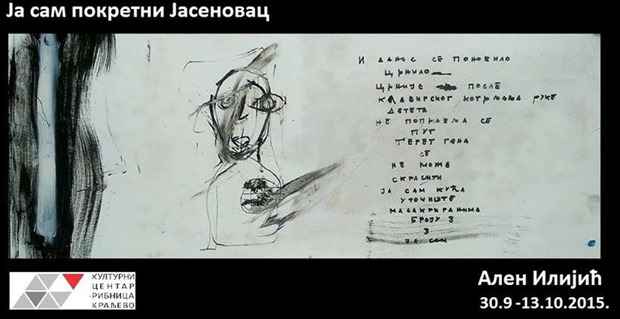 Ја сам покретни Јасеновац
И ДАНАС СЕ ПОНОВИЛО
ЦРНИЛО
ЦРНИЈЕ ПОСЛЕ
КЛАВИРСКОГ КОТРЉАЊА РУКЕ
ДЕТЕТА
НЕ ПОПРАВЉА СЕ
ПУТ
ТЕРЕТ ГЕНА
СЕ
НЕ МОЖЕ
СКРАСИТИ
ЈА САМ КУЋА
УТОЧИШТЕ
МАСАКРИРАНИМА
БРОЈУ 3
3
КУЛТУРНИ
ЦЕНТАР
РИБНИЦА
КРАЉЕВО
Ален Илијић
30.9 -13.10.2015.